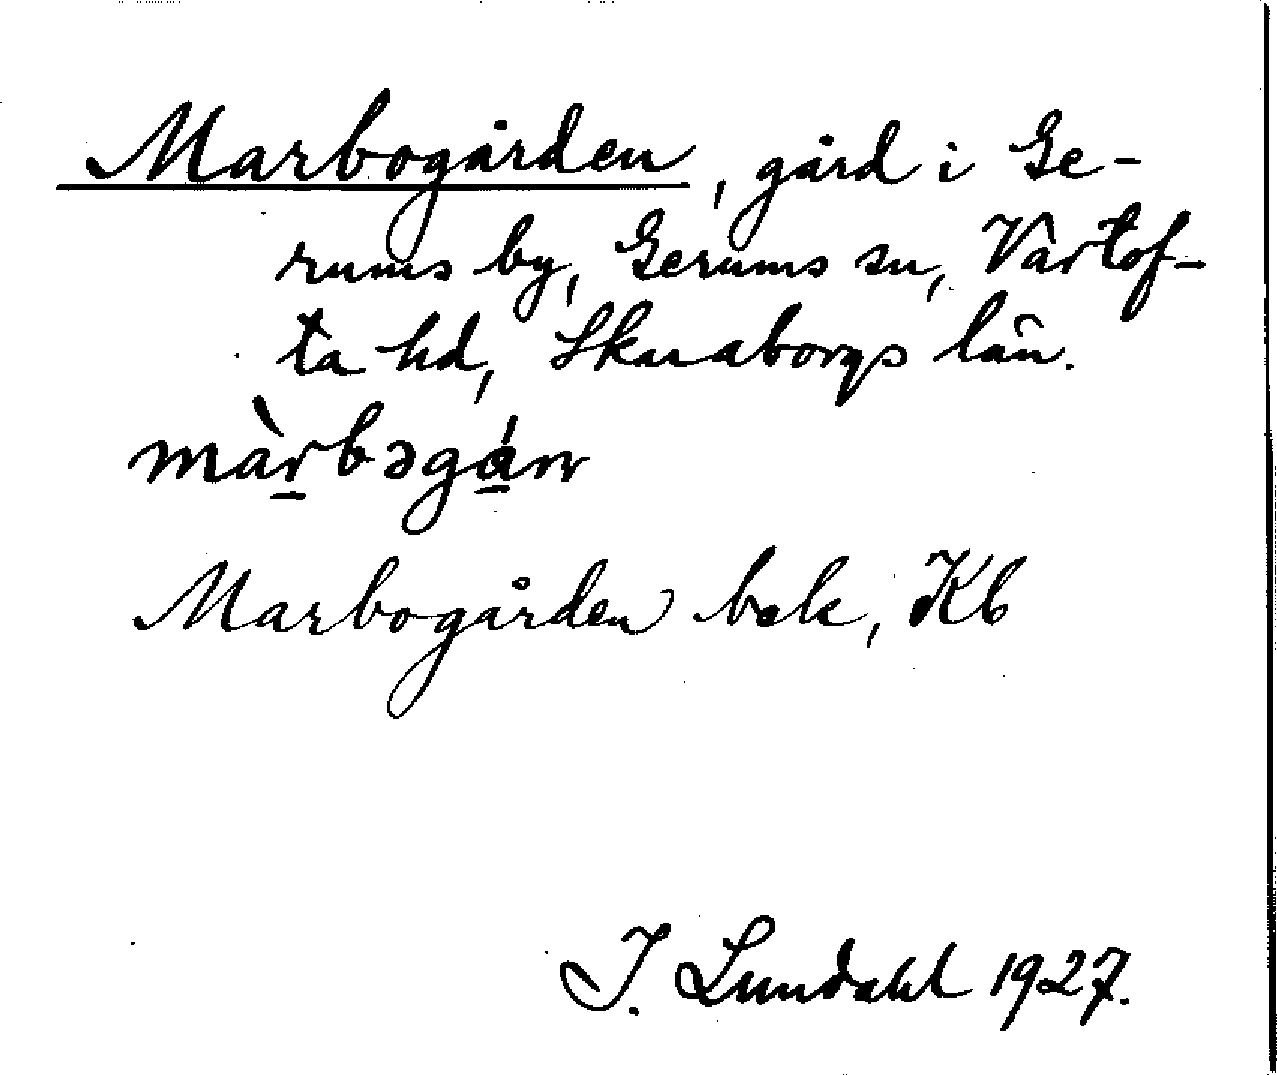 Marbogården, gård i Ge-
rums by, Gerums sn, Vartof-
ta hd, Skaraborgs län.
màr̠bəgá̠nr
Marbogården bek, Kb
I. Lundahl 1927.